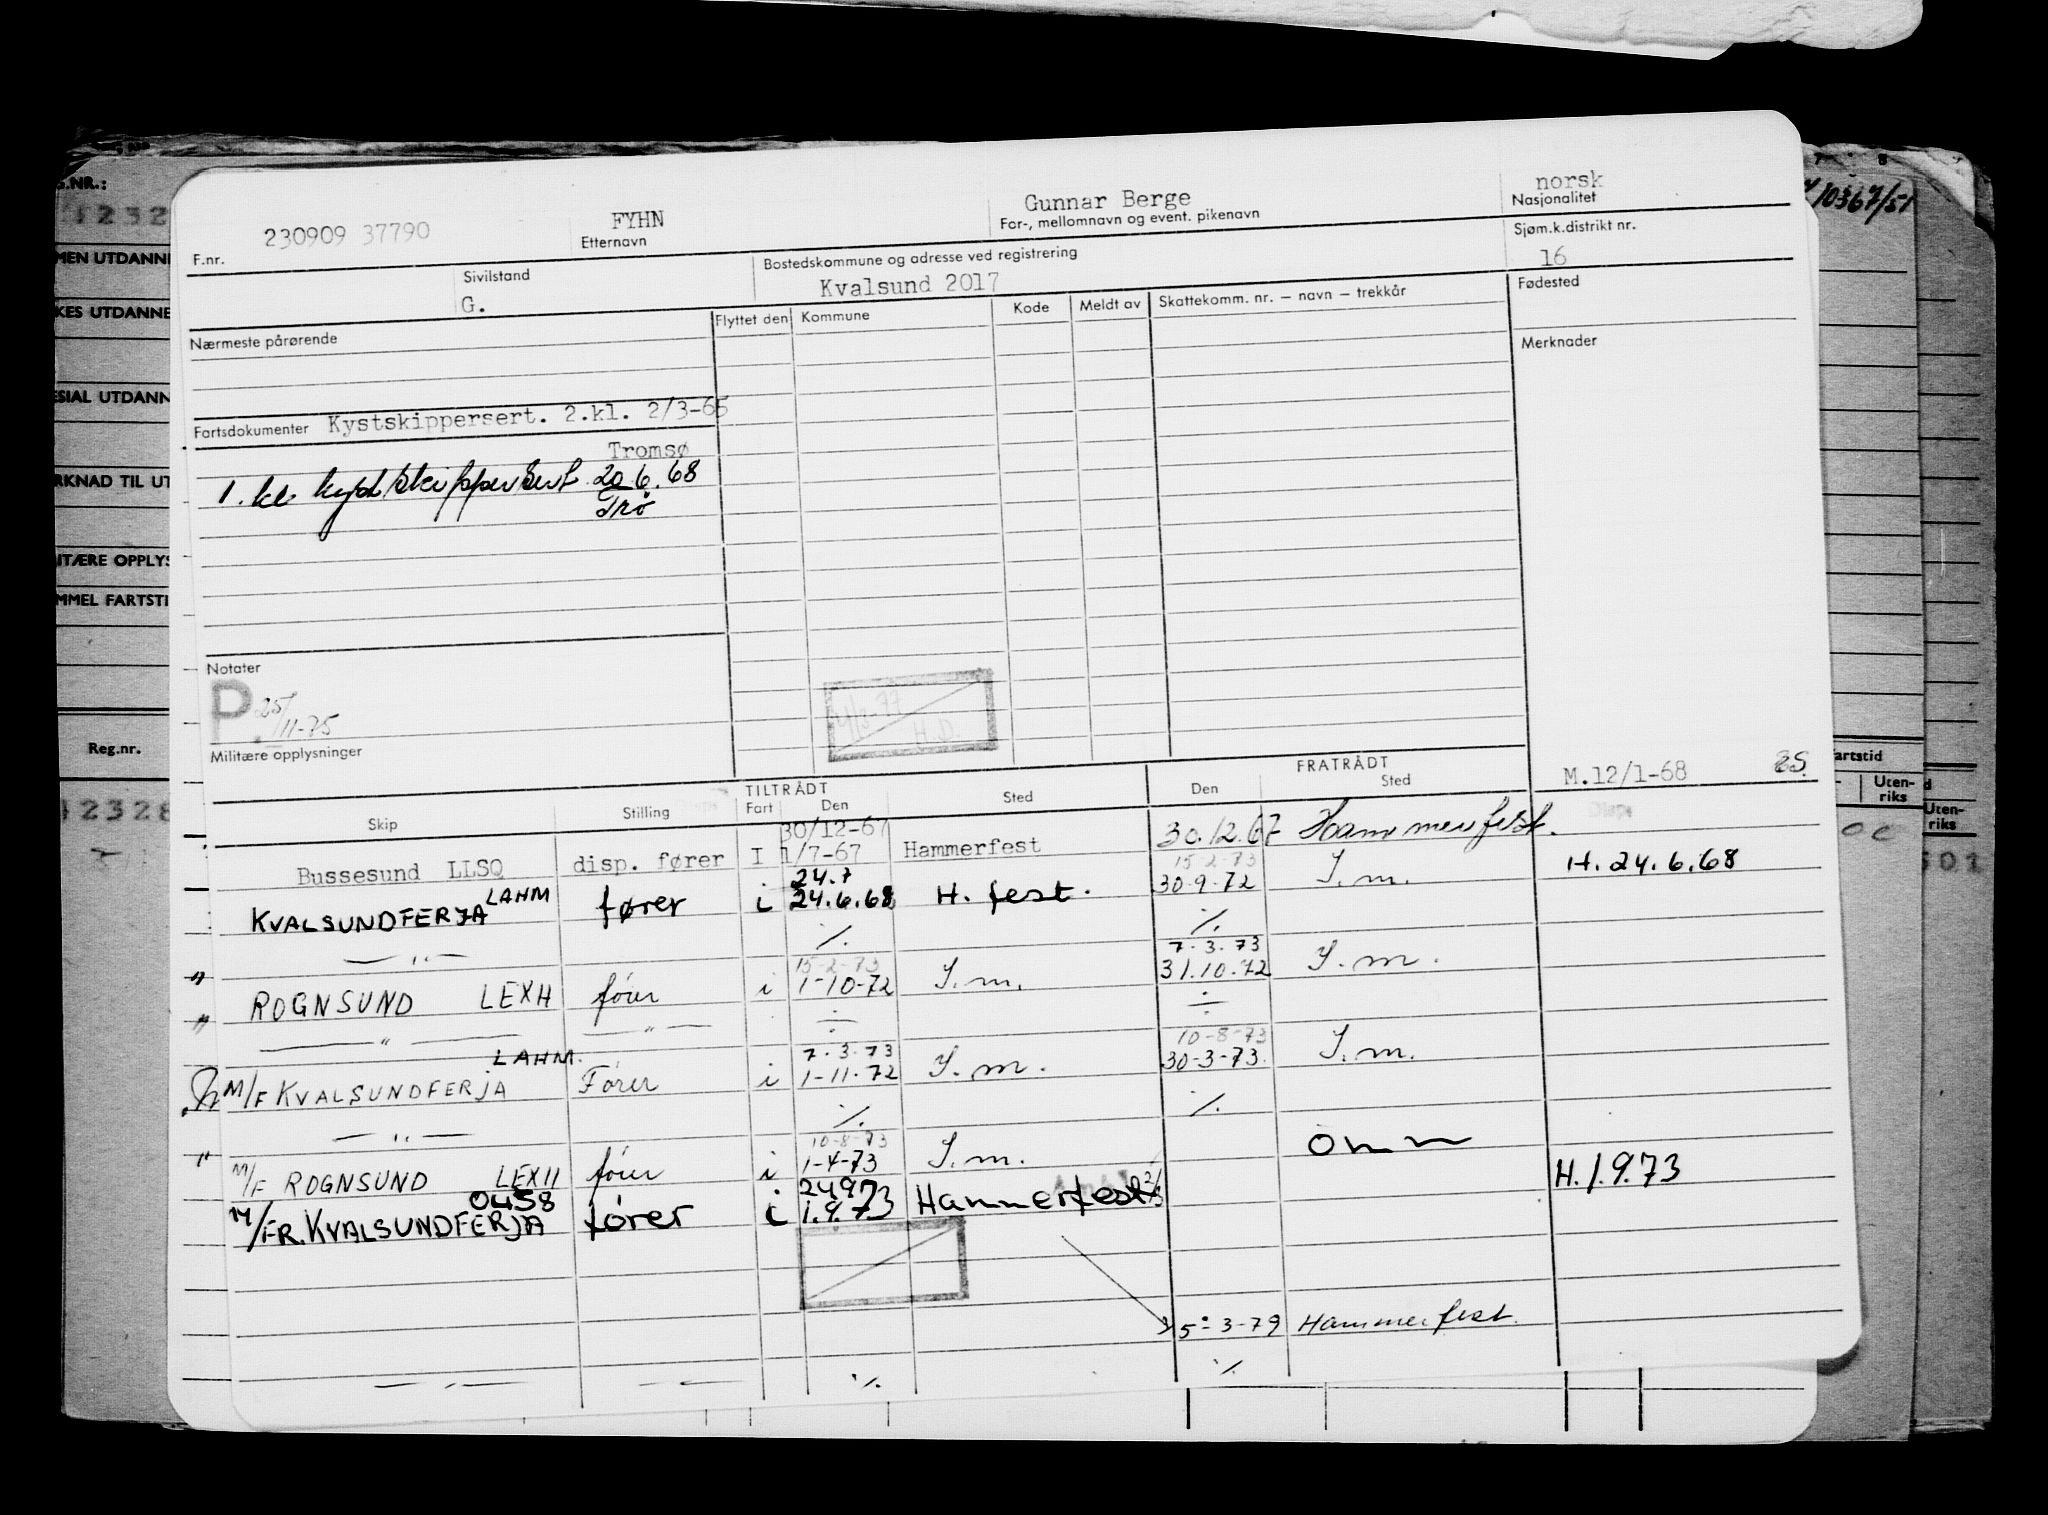 230909 37790 FYHN Gunnar Berge norsk
F.nr. Etternavn For-, mellomnavn og event. pikenavn Nasjonalitet
Sivilstand Bostedskommune og adresse ved registrering Sjøm.k.distrikt nr.
G. Kvalsund 2017 16
Nærmeste pårørende Flyttet den Kommune Kode Meldt av Skattekomm. nr. – navn – trekkår Fødested
Merknader
Fartsdokumenter Kystskippersert. 2.kl. 2/3-65
Tromsø
1. kl kystskippersert 20.6.68
Trø
Notater
P. 25/11-75
H.D.
Militære opplysninger
TILTRÅDT FRATRÅDT M.12/1-68
Skip Stilling Fart Den Sted Den Sted
30/12-67
Bussesund LLSQ disp. fører I 1/7-67 Hammerfest 30.12.67 Hammerfest.
LAHM 24.7 15-2-73
KVALSUNDFERJA fører i 24.6.68 H. fest. 30-9-72 S.m. H. 24.6.68
— " — ./. ./.
15-2-73 7.3.73
" ROGNSUND LEXH fører i 1-10-72 S.m. 31.10.72 S.m.
" — " — — " — ÷ ÷
LAHM. 7.3.73 10-8-73
M/F KVALSUNDFERJA Fører i 1-11-72 S.m. 30-3-73. S.m.
— " — ./. ./.
10-8-73
" M/F ROGNSUND LEXH fører i 1-4-73 S.m. omm
0458 2497
M/FR. KVALSUNDFERJA fører i 1.9.73 Hammerfest H.1.9.73
5-3-79 Hammerfest.
— " — — " — ./. ./.
G.NR.:
1232
MEN UTDANNE
KES UTDANNE
ESIAL UTDANN
RKNAD TIL UT
ITÆRE OPPLYS
MMEL FARTSTI
Reg.nr.
12328
7 8
10367/51
artstid
Uten-
riks
Uten-
riks